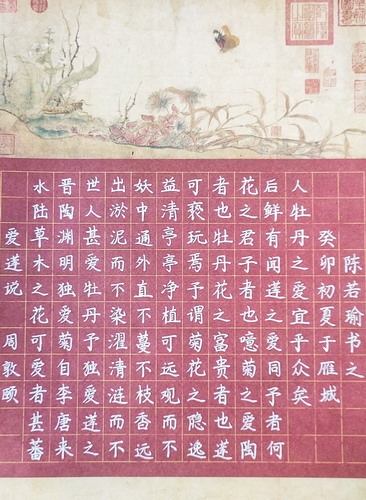 爱莲说 周敦颐
水陆草木之花可爱者甚蕃
晋陶渊明独爱菊自李唐来
世人甚爱牡丹予独爱莲之
出淤泥而不染濯清涟而不
妖中通外直不蔓不枝香远
益清亭亭净植可远观而不
可亵玩焉予谓菊花之隐逸
者也牡丹花之富贵者也莲
花之君子者也噫菊之爱陶
后鲜有闻莲之爱同予者何
人牡丹之爱宜乎众矣
癸卯初夏于雁城
陈若瑜书之